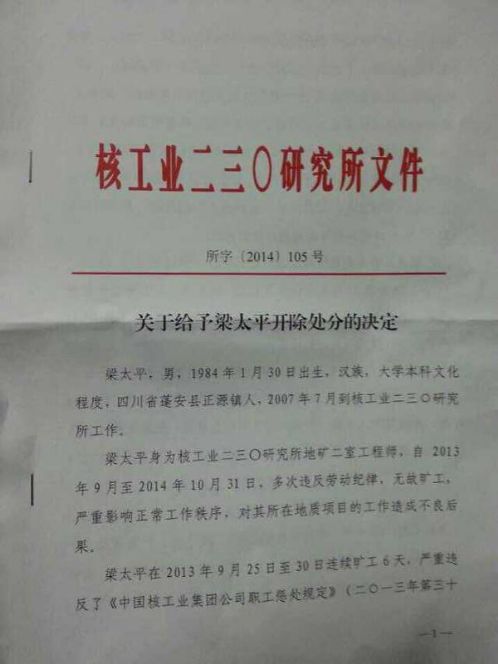 核工业二三〇研究所文件
所字〔2014〕105号
关于给予梁太平开除处分的决定
梁太平，男，1984年1月30日出生，汉族，大学本科文化
程度，四川省蓬安县正源镇人，2007年7月到核工业二三〇研究
所工作。
梁太平身为核工业二三〇研究所地矿二室工程师，自2013
年9月至2014年10月31日，多次违反劳动纪律，无故旷工，
严重影响正常工作秩序，对其所在地质项目的工作造成不良后
果。
梁太平在2013年9月25日至30日连续旷工6天，严重违
反了《中国核工业集团公司职工惩处规定》（二〇一三年第三十
—1—